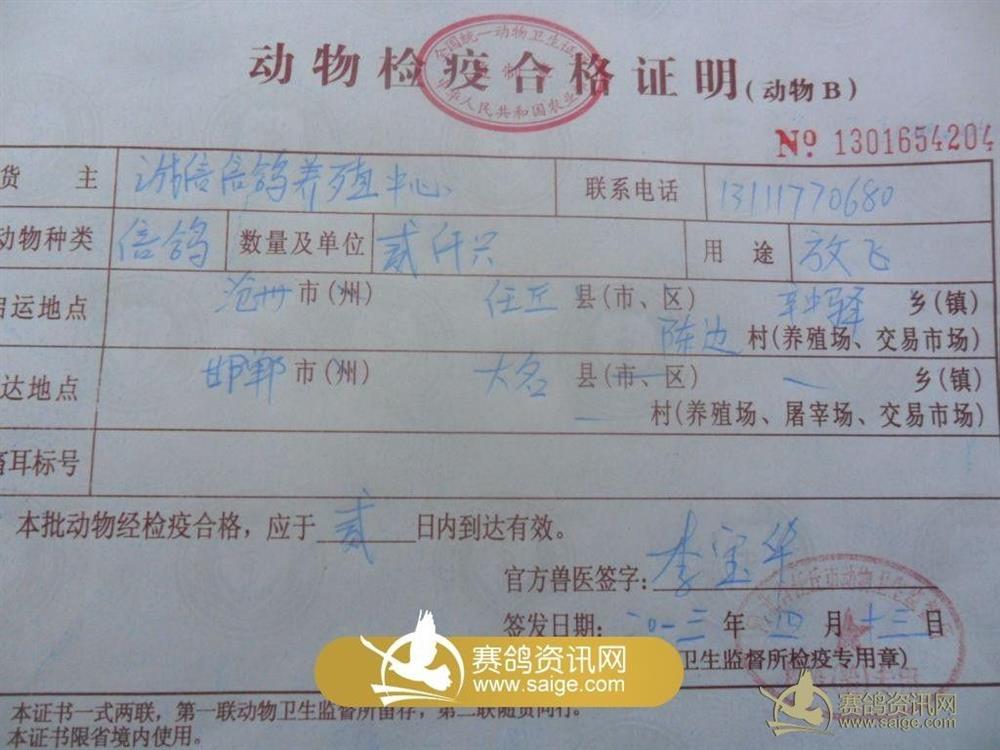 动物检疫合格证明(动物B)
全国统一动物卫生证
中华人民共和国农业
№ 1301654204
货 主 诚信信鸽养殖中心 联系电话 13111770680
动物种类 信鸽 数量及单位 贰仟只 用 途 放飞
启运地点 沧州 市(州) 任丘 县(市、区) 辛中驿 乡(镇)
陈边 村(养殖场、交易市场)
达地点 邯郸 市(州) 大名 县(市、区) 乡(镇)
村(养殖场、屠宰场、交易市场)
畜耳标号
本批动物经检疫合格,应于 贰 日内到达有效。
官方兽医签字: 李宝华
签发日期: 二〇一三 年 四 月 十三 日
卫生监督所检疫专用章)
赛鸽资讯网
www.saige.com
赛鸽资讯网
www.saige.com
本证书一式两联,第一联动物卫生监督所留存,第二联随货同行。
本证书限省境内使用。